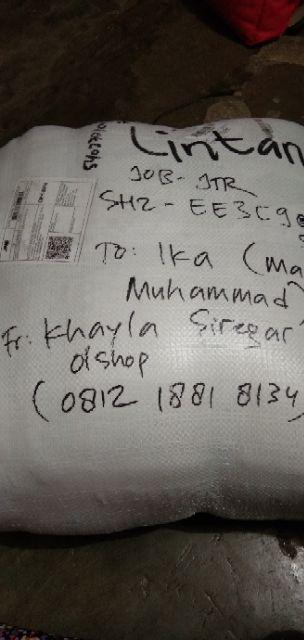 Lintan
JOB - JTR
SH2 - EE3C9
To: Ika (Ma
Muhammad
Fr: Khayla Siregar
olshop
(0812 1881 8134)